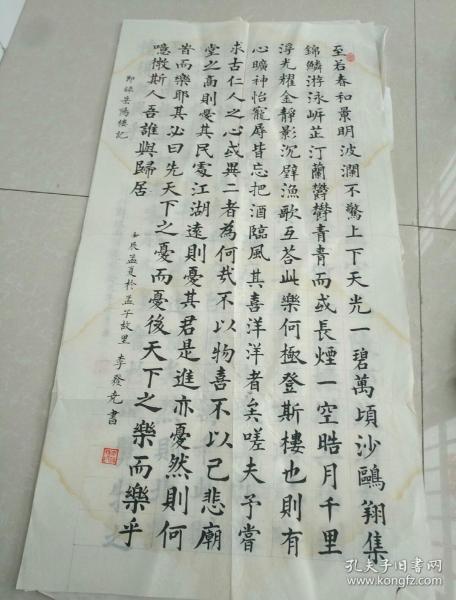 至若春和景明波瀾不驚上下天光一碧萬頃沙鷗翔集
錦鱗游泳岸芷汀蘭欝欝青青而或長煙一空皓月千里
浮光耀金靜影沉璧漁歌互答此樂何極登斯樓也則有
心曠神怡寵辱皆忘把酒臨風其喜洋洋者矣嗟夫予嘗
求古仁人之心或異二者為何哉不以物喜不以己悲廟
堂之高則憂其民處江湖遠則憂其君是進亦憂然則何
昔而樂耶其必曰先天下之憂而憂後天下之樂而樂乎
噫微斯人吾誰與歸居
節録岳陽樓記
壬辰孟夏於孟子故里 李發堯書
孔夫子旧书网
www.kongfz.com